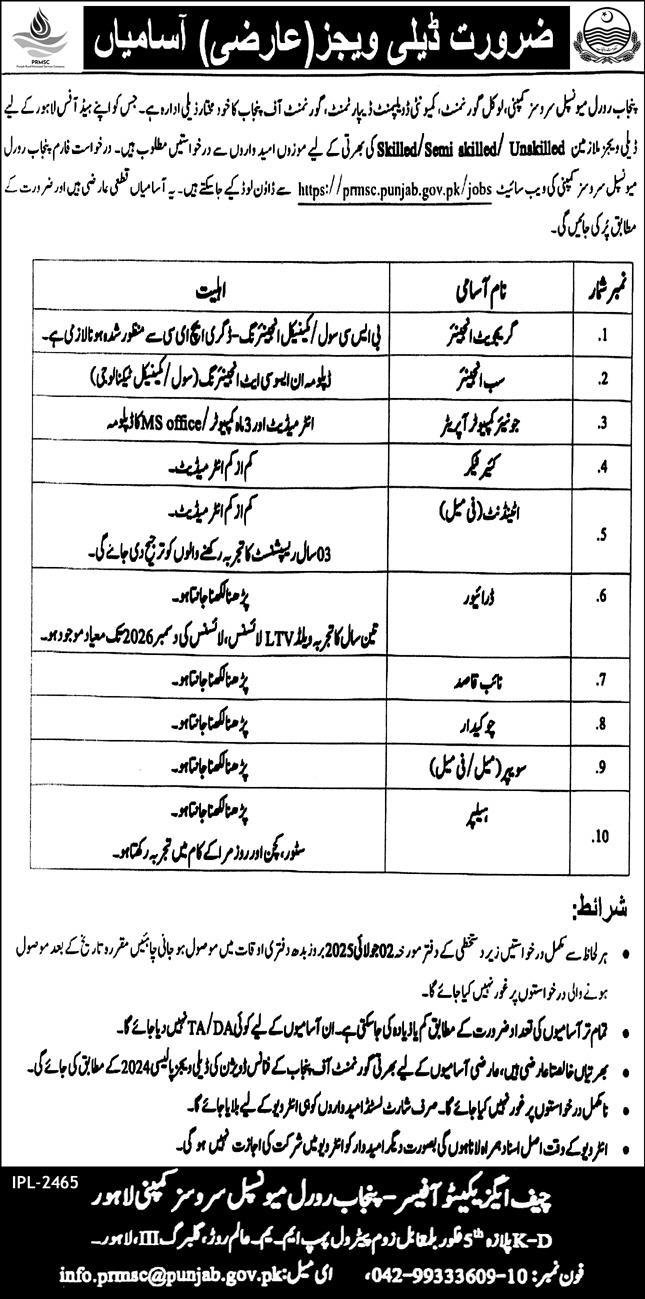 PRMSC
Punjab Rural Municipal Services Company
ضرورت ڈیلی ویجز (عارضی) آسامیاں
پنجاب رورل میونسپل سروسز کمپنی، لوکل گورنمنٹ، کمیونٹی ڈویلپمنٹ ڈیپارٹمنٹ، گورنمنٹ آف پنجاب کا خود مختار ذیلی ادارہ ہے۔ جس کو اپنے ہیڈ آفس لاہور کے لیے
ڈیلی ویجز ملازمین Skilled/Semi skilled/ Unskilled کی بھرتی کے لیے موزوں امیدواروں سے درخواستیں مطلوب ہیں۔ درخواست فارم پنجاب رورل
میونسپل سروسز کمپنی کی ویب سائیٹ https://prmsc.punjab.gov.pk/jobs سے ڈاؤن لوڈ کیے جاسکتے ہیں۔ یہ آسامیاں قطعی عارضی ہیں اور ضرورت کے
مطابق پُر کی جائیں گی۔
نمبر شمار نام آسامی اہلیت
1. گریجویٹ انجینئر بی ایس سی سول/مکینیکل انجینئرنگ- ڈگری ایچ ای سی سے منظور شدہ ہونا لازمی ہے۔
2. سب انجینئر ڈپلومہ ان ایسوسی ایٹ انجینئرنگ (سول/مکینیکل ٹیکنالوجی)
3. جونیئر کمپیوٹر آپریٹر انٹرمیڈیٹ اور 3 ماہ کمپیوٹر/MS office کا ڈپلومہ
4. کیئر ٹیکر کم از کم انٹرمیڈیٹ۔
5. اٹینڈنٹ (فی میل) کم از کم انٹرمیڈیٹ۔
03 سال ریسپشنسٹ کا تجربہ رکھنے والوں کو ترجیح دی جائے گی۔
6. ڈرائیور پڑھنا لکھنا جانتا ہو۔
تین سال کا تجربہ ویلڈ LTV لائسنس، لائسنس کی دسمبر 2026 تک معیاد موجود ہو۔
7. نائب قاصد پڑھنا لکھنا جانتا ہو۔
8. چوکیدار پڑھنا لکھنا جانتا ہو۔
9. سویپر (میل/فی میل) پڑھنا لکھنا جانتا ہو۔
10. ہیلپر پڑھنا لکھنا جانتا ہو۔
سٹور، کچن اور روزمرا کے کام میں تجربہ رکھتا ہو۔
شرائط:
• ہر لحاظ سے مکمل درخواستیں زیر دستخطی کے دفتر مورخہ 02 جولائی 2025 بروز بدھ دفتری اوقات میں موصول ہو جانی چاہئیں مقررہ تاریخ کے بعد موصول
ہونے والی درخواستوں پر غور نہیں کیا جائے گا۔
• تمام تر آسامیوں کی تعداد ضرورت کے مطابق کم یا زیادہ کی جاسکتی ہے۔ ان آسامیوں کے لیے کوئی TA/DA نہیں دیا جائے گا۔
• بھرتیاں خالصتا عارضی ہیں، عارضی آسامیوں کے لیے بھرتی گورنمنٹ آف پنجاب کے فنانس ڈویژن کی ڈیلی ویجز پالیسی 2024 کے مطابق کی جائے گی۔
• نامکمل درخواستوں پر غور نہیں کیا جائے گا۔ صرف شارٹ لسٹڈ امیدواروں کو ہی انٹرویو کے لیے بلایا جائے گا۔
• انٹرویو کے وقت اصل اسناد ہمراہ لانا ہوں گی بصورت دیگر امیدوار کو انٹرویو میں شرکت کی اجازت نہیں ہو گی۔
IPL-2465
چیف ایگزیکیٹو آفیسر - پنجاب رورل میونسپل سروسز کمپنی لاہور
K-D پلازہ 5th فلور بلمقابل زوم پیٹرول پمپ ایم۔ ایم۔ عالم روڑ، گلبرگ III، لاہور۔
فون نمبر: 10-042-99333609، ای میل: info.prmsc@punjab.gov.pk